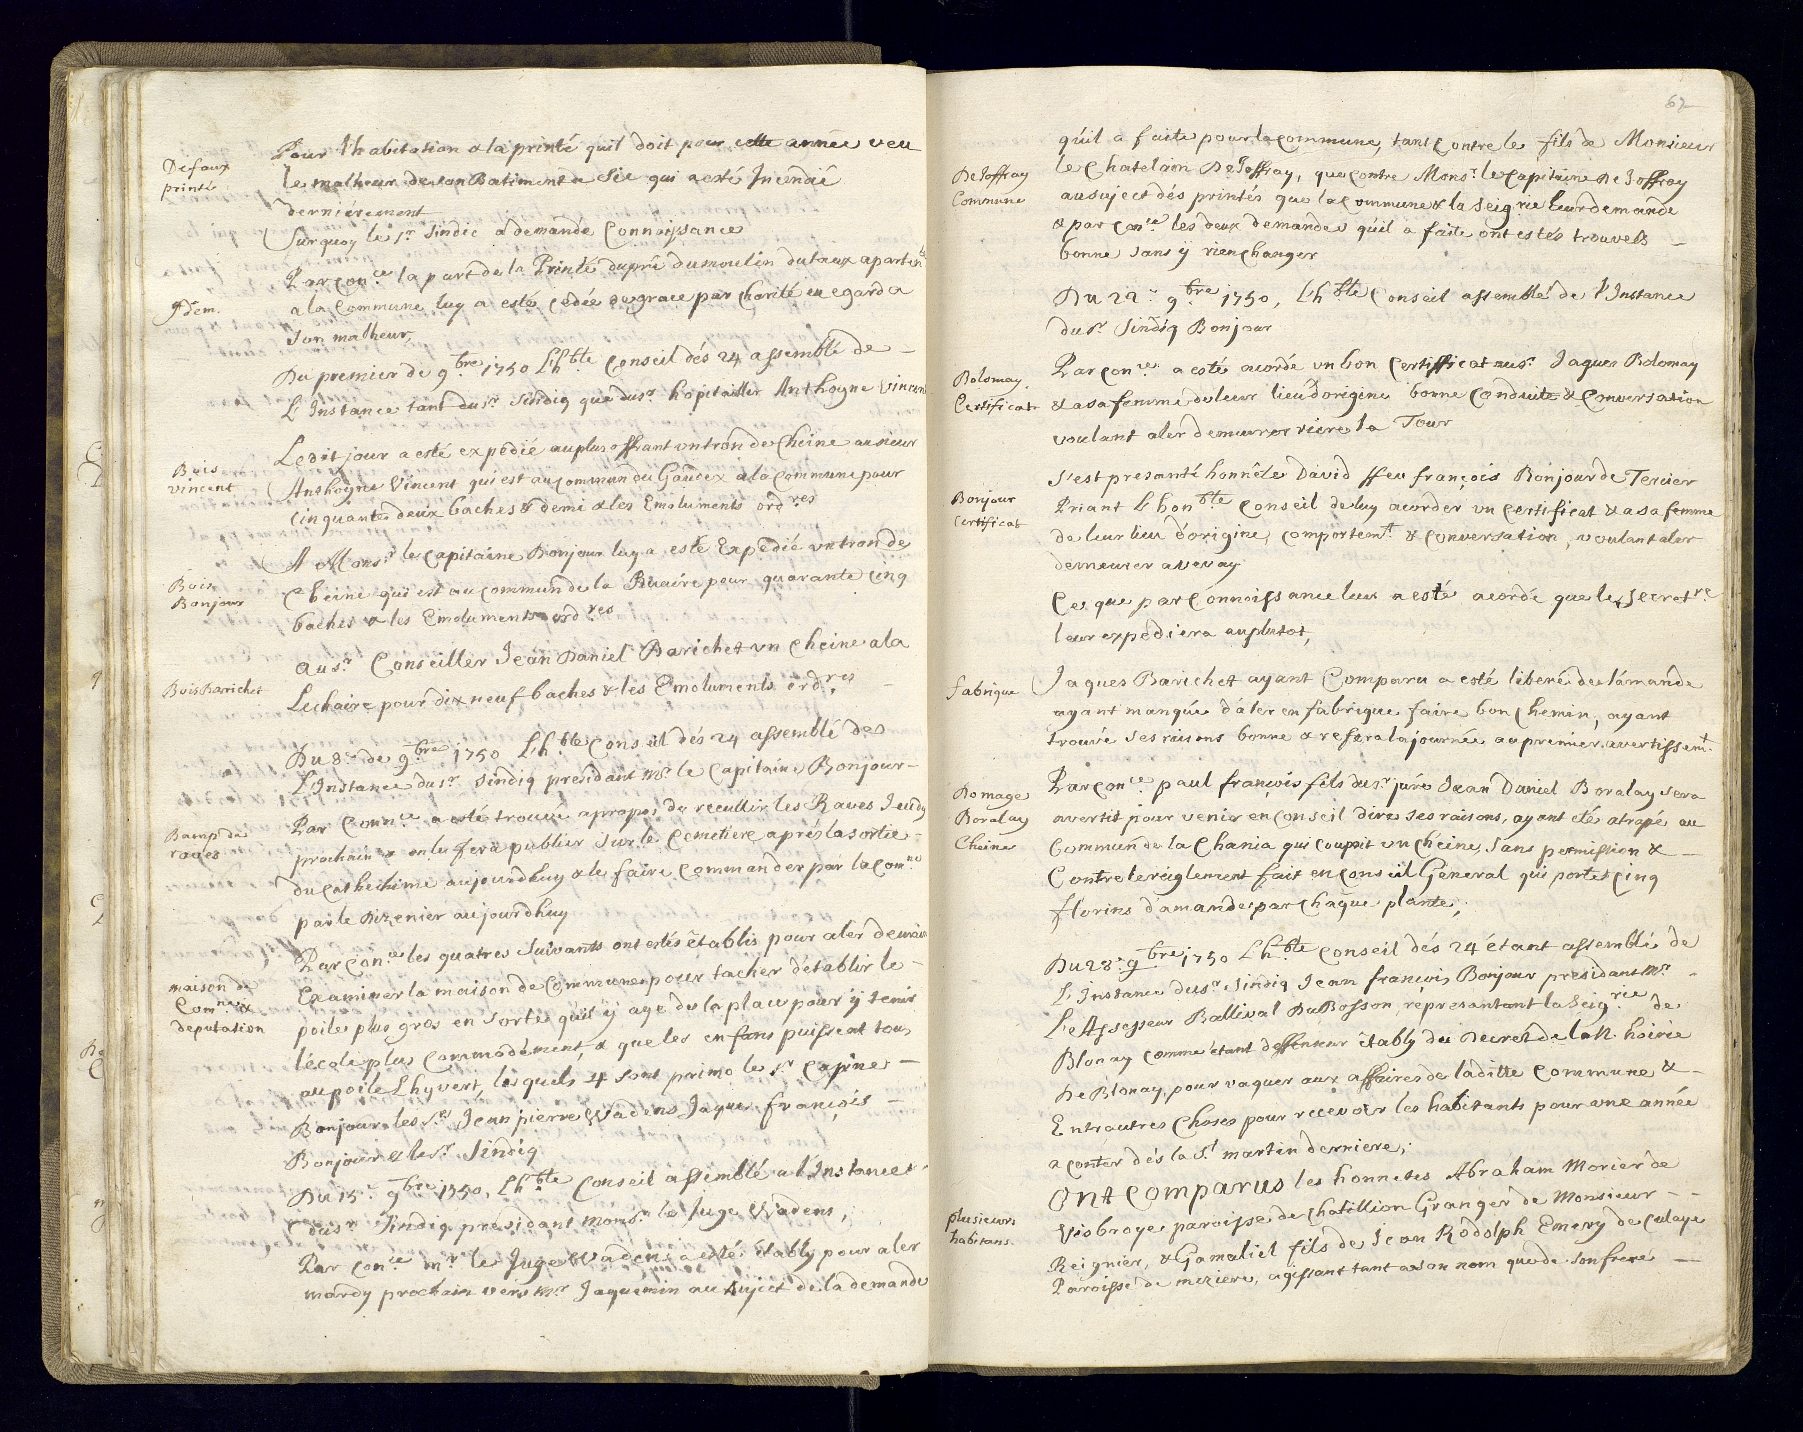 Defaux
printé
Pour l'habitation & la printé quil doit pour cette année veu
le malheur de son Batiment a Sie qui a esté Incendié
derniérement
Surquoy le sr. Sindic a demandé Connoissance
Idem.
Par con.ce la part de la Printé du pré du moulin dutaux apartent
a la Commune luy a esté cedée de grace par charité en egard a
son malheur,
Du premier de 9.bre 1750 Lh.ble Conseil dés 24 assemblé de
L'Instance tant du sr. Sindiq que du sr. hopitallier Anthoyne Vincent
Bois
vincent
Ledit jour a esté expédié au plus offrant un tron de Cheine au sieur
Anthoyne Vincent qui est au commun du Gaucex a la Commune pour
Cinquante deux baches & demi & les Emoluments ord.res
Bois
Bonjour
A Monsr. le Capitaine Bonjour luy a esté Expedié un tron de
Cheine qui est au commun de la Rivaire pour quarante cinq
baches & les Emoluments ord.res
Bois Barichet
au sr. Conseiller Jean Daniel Barichet un Cheine a la
Lechaire pour dix neuf baches & les Emoluments ord.res
Du 8.e de 9.bre 1750 Lh.ble Conseil dés 24 assemblé de
L'Instance du sr. Sindiq presidant mr. le Capitaine Bonjour
Bamp de
raves
Par Conn.ce a esté trouvé apropos de recullir les Raves Jeudy
prochain & on le fera publier sur le Cemetiere aprés la sortie
du cathechime aujourdhuy & le faire Commander par la Com.ne
par le Dizenier aujourdhuy
maison de
Com.ne &
deputation
Par Con.ce les quatres Suivants ont estés établis pour aler demain
Examiner la maison de Commune pour tacher d'établir le
poile plus gros en sorte qu'il y aye de la place pour y tenir
l'école plus Commodément, & que les enfans puissent tous
au poile Lhyvert, lesquels 4 sont primo le sr. Cap.ne
Bonjour les srs. Jean pierre Wadens Jaques françois
Bonjour & le sr. Sindiq
Du 15.e 9.bre 1750, Lh.ble Conseil assemblé a l'Instance
du sr. Sindiq présidant monsr. le Juge Wadens,
Par con.ce mr. le Juge Wadens a esté établÿ pour aler
mardy prochain vers mr. Jaquemin au sujet de la demande
62
qu'il a faite pour la Commune, tant contre le fils de Monsieur
De Joffray
Commune
le Chatelain DeJoffray, que contre Monsr. le Capitaine De Joffray
au sujet dés printés que la Commune & la Seig.rie leur demande
& par con.ce les deux demandes qu'il a faite ont estés trouvés
bonne sans ÿ rien changer
Du 22.e 9.bre 1750, Lh.ble Conseil assemblé de l'Instance
du sr. Sindiq Bonjour
Bolomay.
Certificat
Par con.ce a esté acordé un bon Certifficat au sr. Jaques Bolomay
& a sa femme de leur lieu d'origine bonne Conduite & Conversation
voulant aler demeurer riere la Tour
Bonjour
Certificat
S'est presanté honnête David ffeu françois Bonjour de Tercier
Priant L'hon.ble Conseil de luy acorder un certificat & a sa femme
de leur lieu d'origine, comportem.t & Conversation, voulant aler
demeurer a vevay
Ce que par Connoissance leur a esté acordé que le Secret.re
leur expediera au plutot,
fabrique
Jaques Barichet ayant Comparu a esté liberé de lámande
ayant manqué d'aler en fabrique faire bon Chemin, ayant
trouvé ses raisons bonne & refera la journée au premier avertissem.t
Domage
Boralay
Cheine
Par con.ce paul françois fils du sr. juré Jean Daniel Boralay sera
avertit pour venir en Conseil dire ses raisons, ayant été atrapé au
Commun de la Chania qui coupoit un cheine sans permission &
Contre le reiglement fait en Conseil General qui porte Cinq
florins d'amande par Chaque plante,
Du 28.e 9.bre 1750 Lh.ble Conseil dés 24 étant assemblé de
L'Instance du sr. Sindiq Jean francois Bonjour presidant mr.
Le Assesseur Ballival DuBosson, représantant la Seig.rie de
Blonay comme étant deffenseur établÿ du Decret de la N. hoirie
De Blonay, pour vaquer aux affaires de laditte Commune &
Entrautres Choses pour recevoir les habitants pour une année
a conter dés la St. martin derniere,
plusieurs
habitans.
Ont Comparus les honnetes Abraham Morier de
Viobroye paroisse de Chatillion Granger de Monsieur
Reignier, & Gamaliel fils de Jean Rodolph Emery de Culaye
Paroisse de meziere, agissant tant a son nom que de son frere